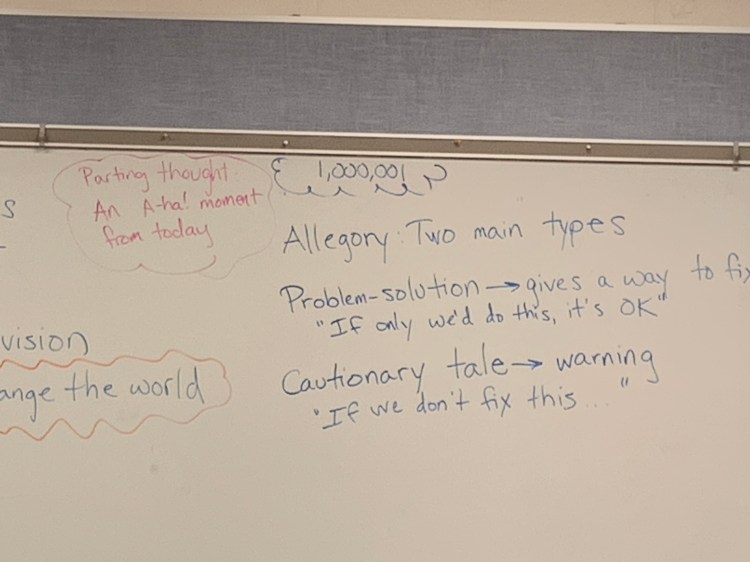 Parting thought:
An A-ha! moment
from today
1,000,001
Allegory: Two main types
Problem-solution → gives a way to fix
"If only we'd do this, it's OK"
Cautionary tale → warning
"If we don't fix this..."
vision
ange the world